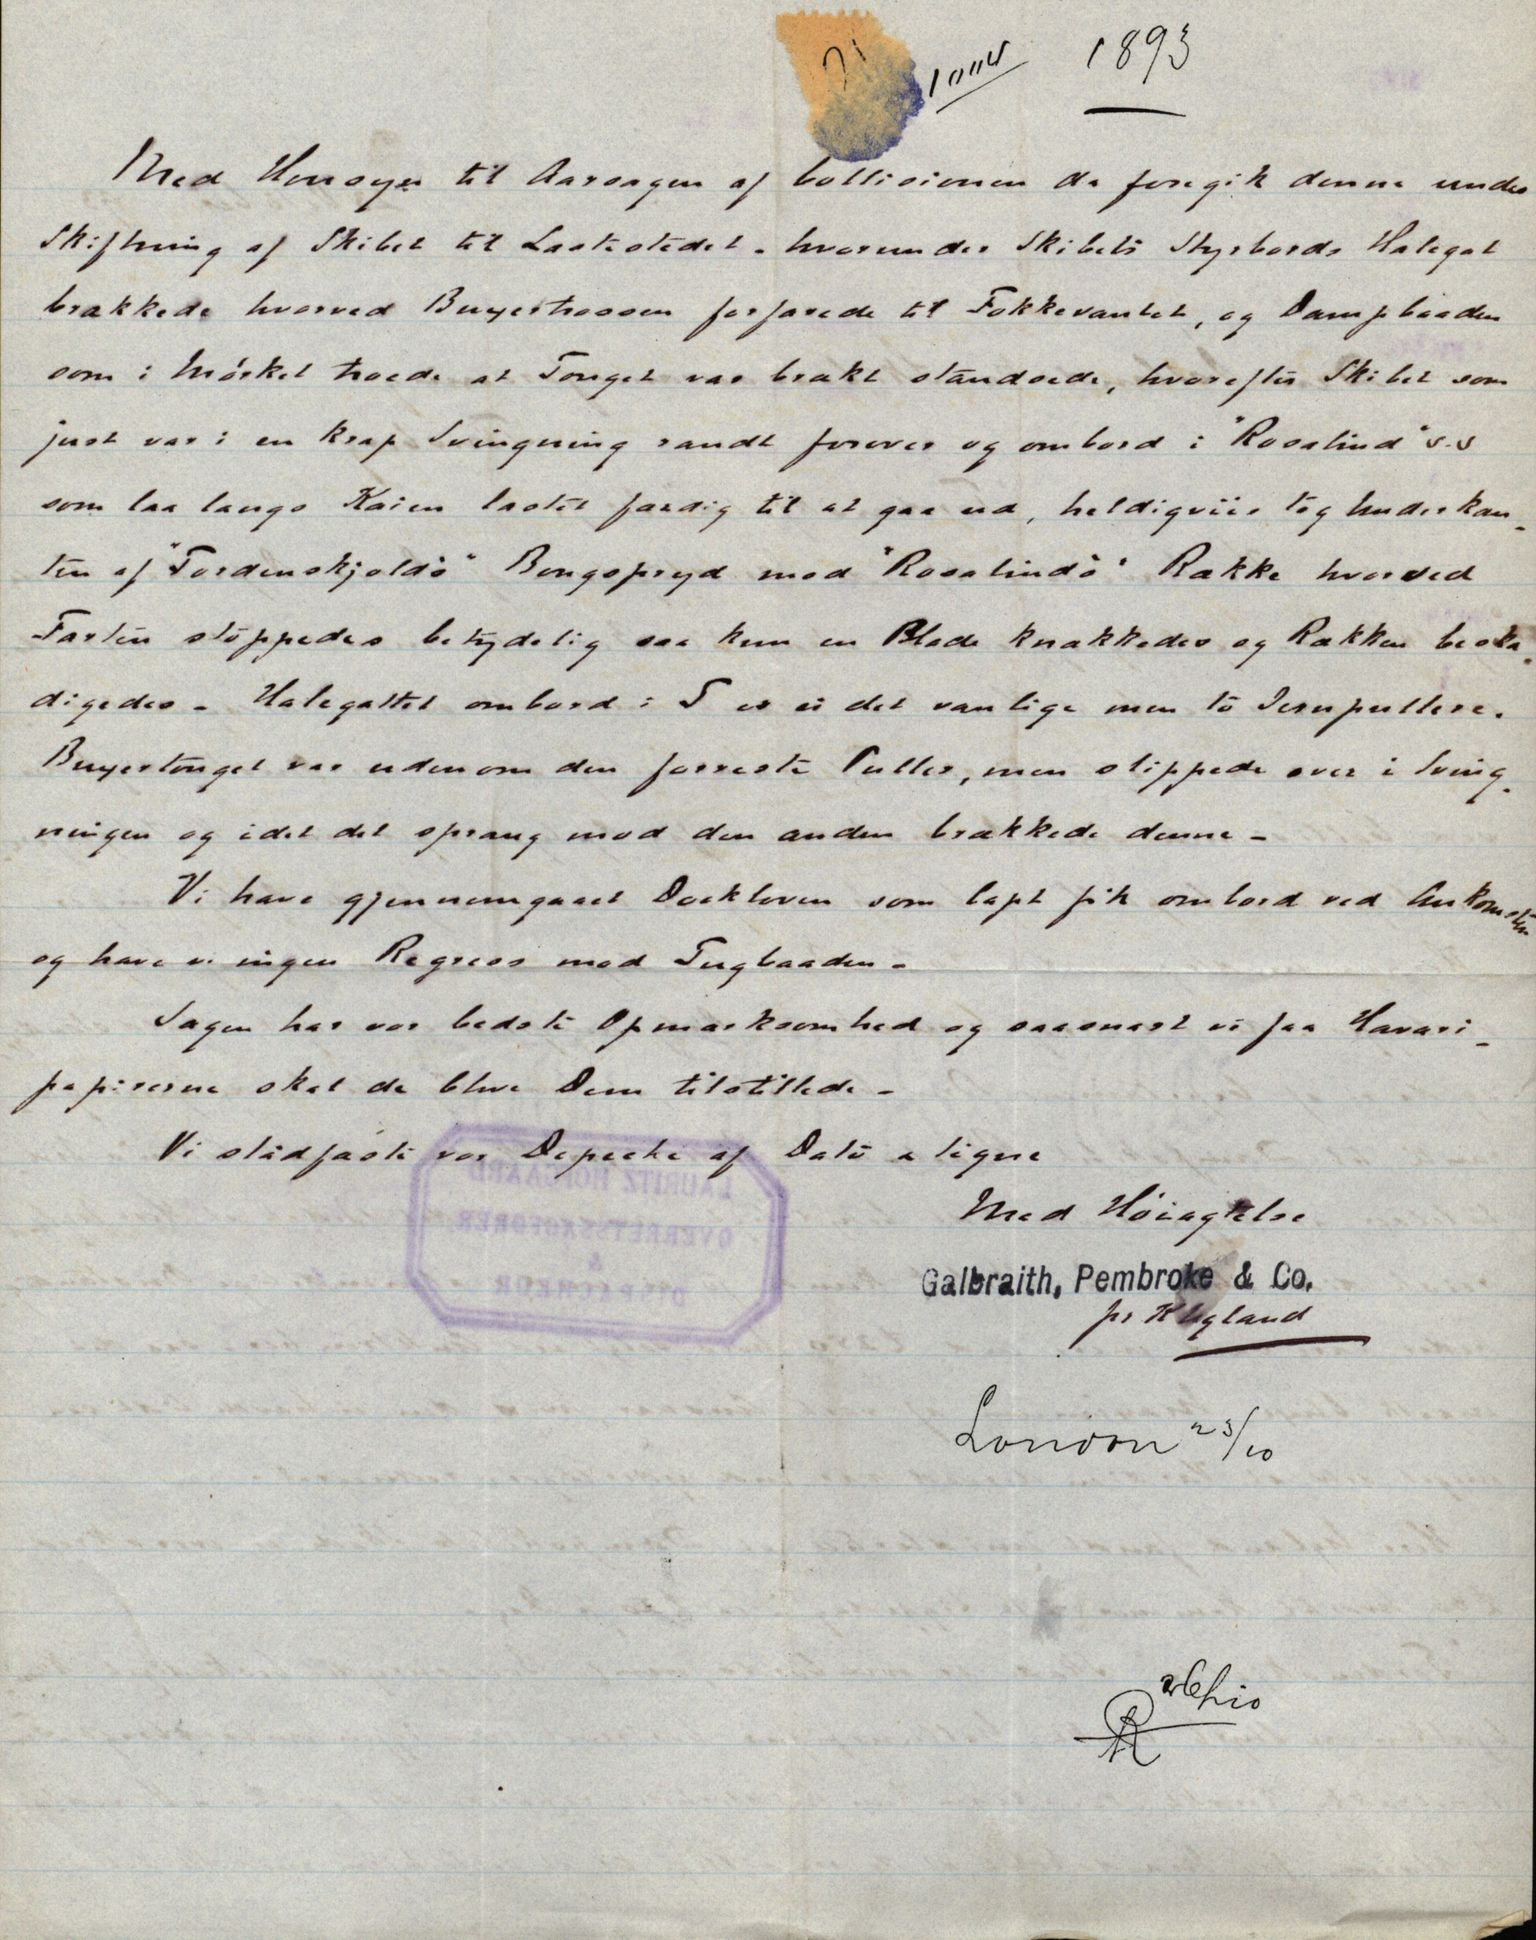 1893
Med Hensyn til Aarsagen af Collisionen da foregik denne under
Skiftning af Skibet til Lastestedet - hvorunder Skibets Styrbords Halegat
brækkede hvorved Bugertrossen forfarede til Fokkevantet, og Dampbaaden
som i Mörket troede at Touget var brækt standsede, hvorefter Skibet som
just var i en knap Svingning randt forover og ombord i "Rosalind" S.S
som laa langs Kaien lastet færdig til at gaa ud, heldigviis tog Underkan-
ten af "Tordenskjolds" Bougspryd mod "Rosalinds" Række hvorved
Farten stoppedes betydelig saa kun en Plade knækkedes og Rækken beska-
digedes - Halegattet ombord i T er ei det vanlige men to Jernpullere.
Bugertouget var udenom den forreste Puller, men slippede over i Sving-
ningen og idet det sprang mod den anden brækkede denne -
Vi have gjennemgaaet Dockloven som Capt fik ombord ved Ankomsten
og have vi ingen Regress mod Tugbaaden -
Sagen har vor bedste Opmærksomhed og saasnart vi faa Havari-
papirerne skal de blive Dem tilstillede -
Vi stadfæste vor Depeche af Dato & tegne
Med Höiagtelse
Galbraith, Pembroke & Co.
pr
London 23/10
LAURITZ HOFGAARD
OVERRETSSAGFØRER
&
DISPACHEUR